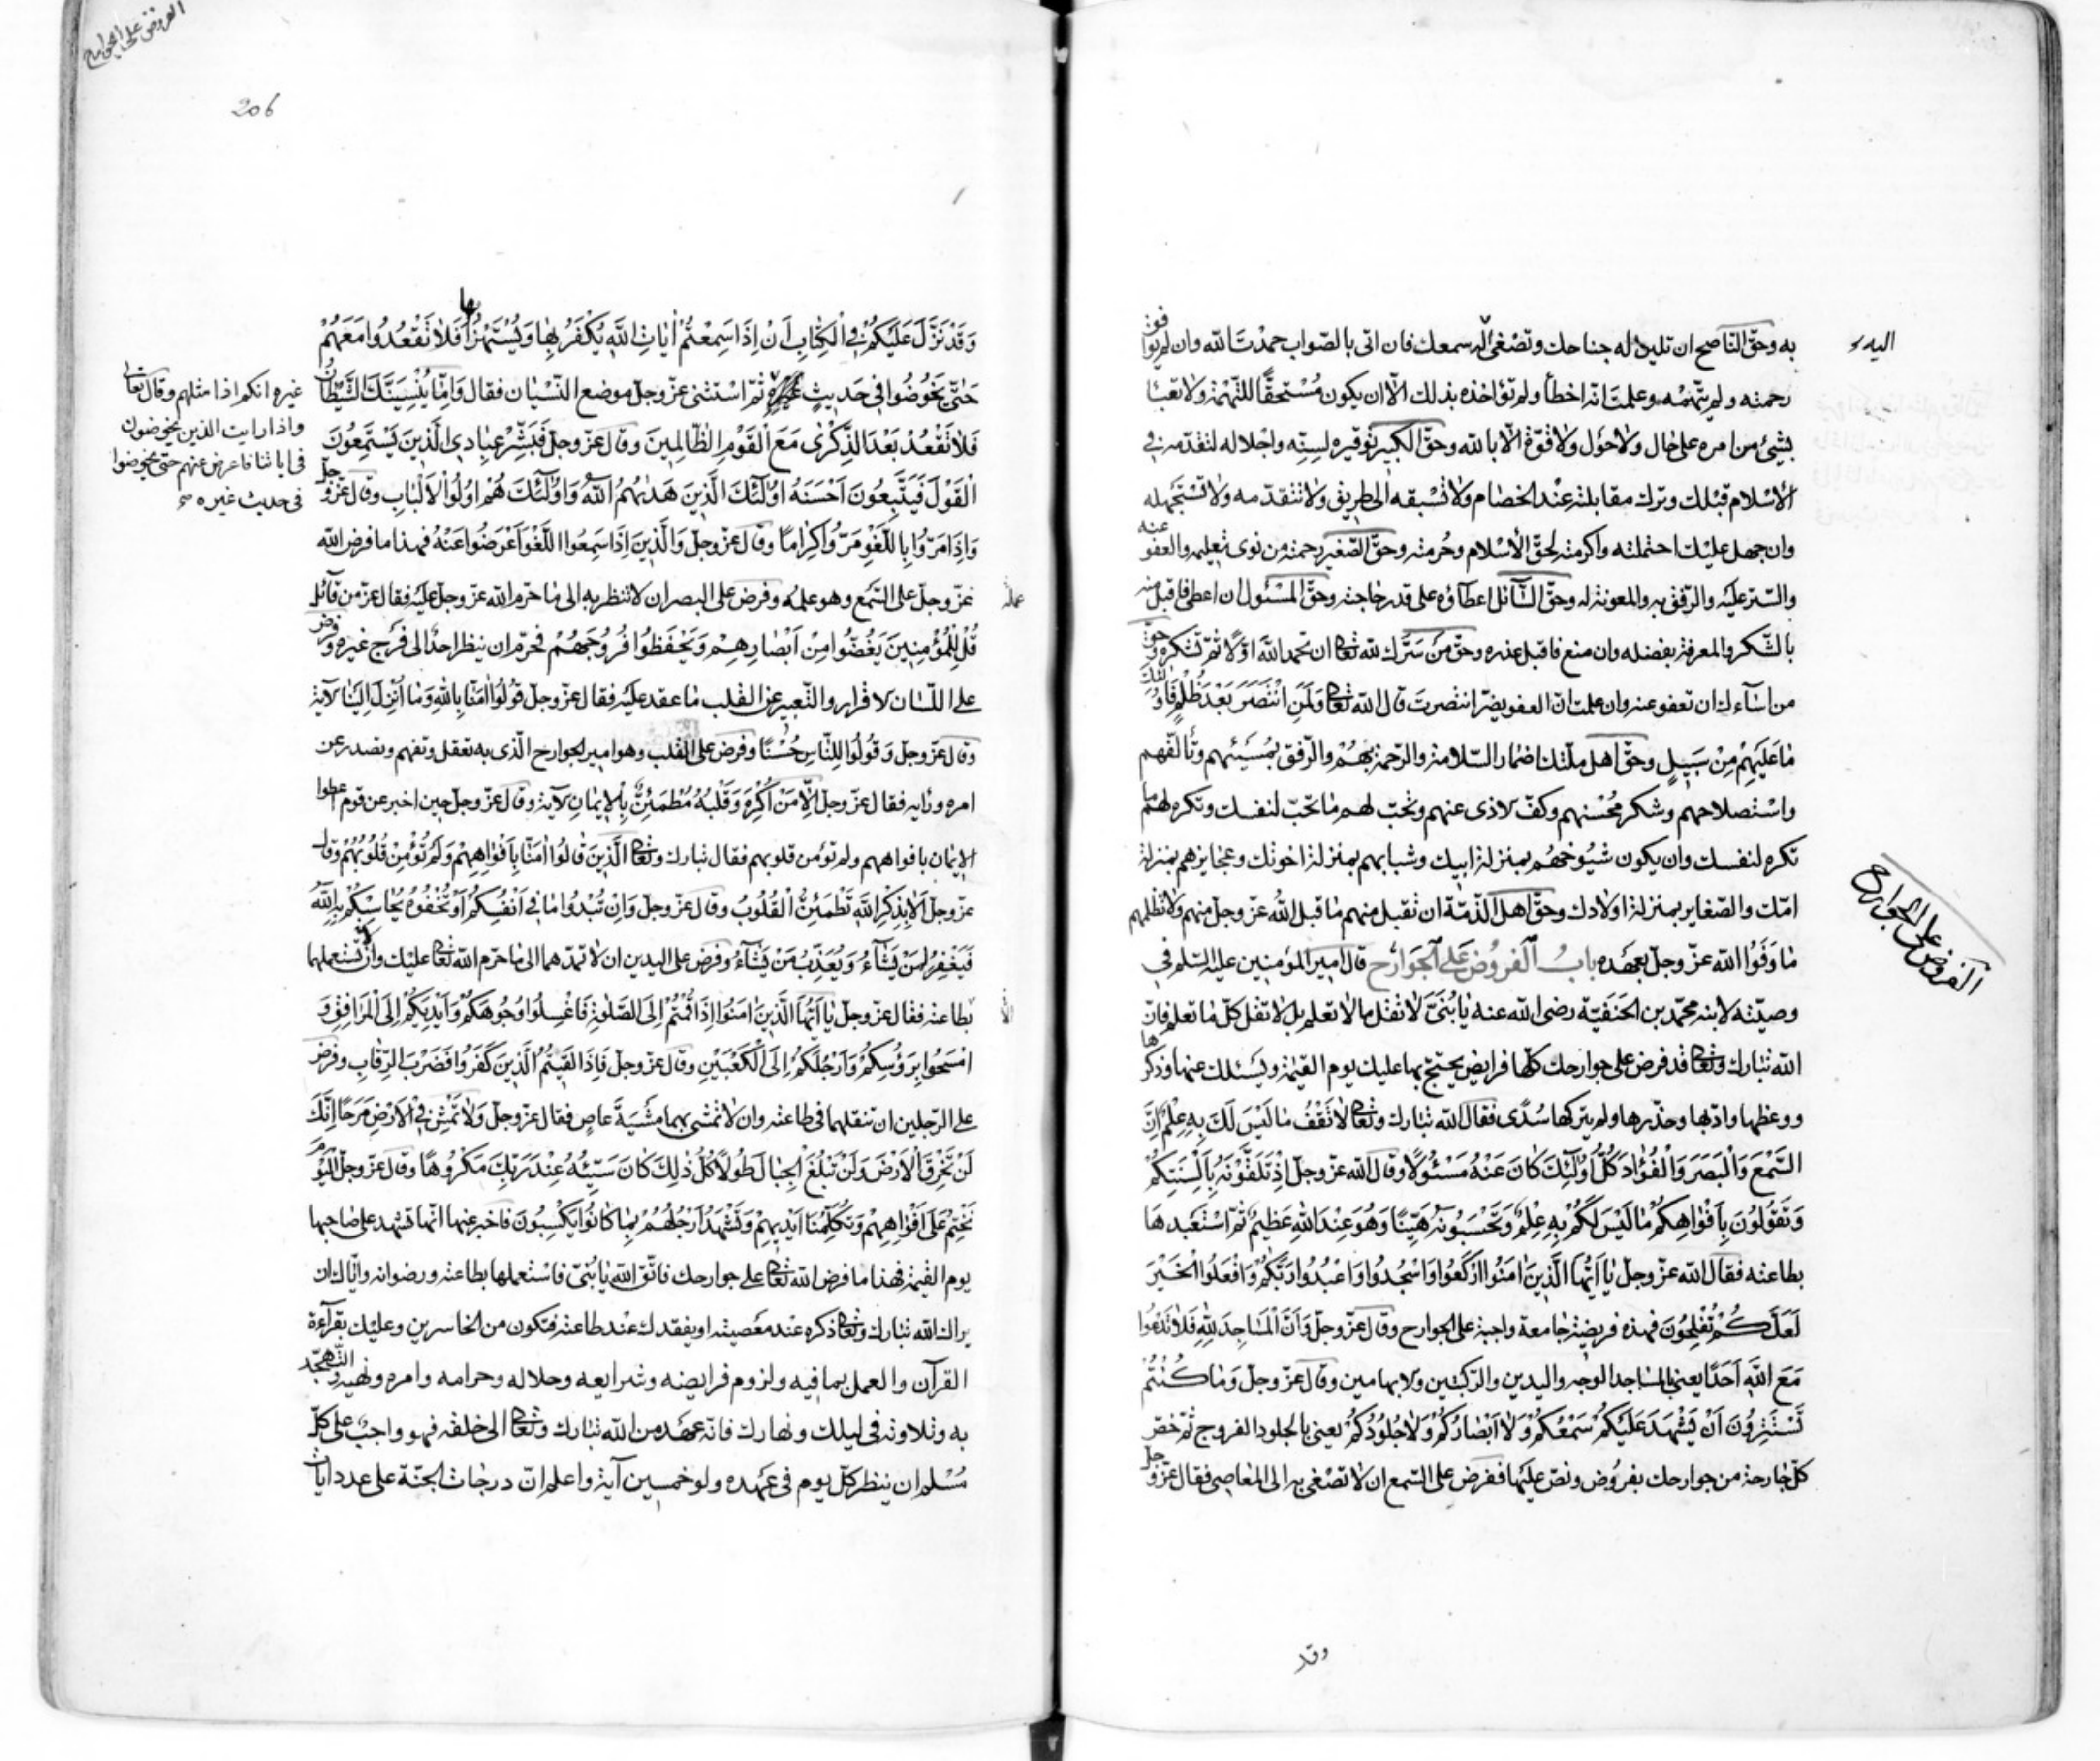 به وحق الناصح ان تلين له جناحك وتصغى اليه بسمعك فان اتى بالصواب حمدت الله وان لم يوافق
رحمته ولم تتهمه وعلمت انه اخطأ ولم تؤاخذه بذلك الّا ان يكون مُستحقًّا للتهمة ولا تعبأ
بشئ من امره على حال ولا حول ولا قوّة الّا بالله وحقّ الكبير توقيره لسنّه واجلاله لتقدّمه فى
الاسلام قبلك وترك مقابلته عند الخصام ولا تسبقه الى طريق ولا تتقدّمه ولا تستجهله
وان جهل عليك احتملته واكرمته لحقّ الاسلام وحُرمته وحقّ الصّغير رحمته من نوى تعليمه والعفو عنه
والستر عليه والرّفق به والمعونة له وحقّ السّآئل اعطآؤه على قدر حاجته وحقّ المسئول ان اعطى فاقبل منه
بالشّكر والمعرفة بفضله وان منع فاقبل عذره وحقّ من سَرَّك لله تعالى ان تحمد الله اوّلًا ثمّ تشكره وحقّ
من اسآءك ان تعفو عنه وان علمت انّ العفو يضرّ انتصرت قال الله تعالى وَلَمَنِ انْتَصَرَ بَعْدَ ظُلْمِهِ فَاُولٰئِكَ
مٰا عَلَيْهِمْ مِنْ سَبيلٍ وحقّ اهل ملّتك اضمار السّلامة والرّحمة بهُمْ والرّفق بمُسيئهم وتألّفهم
واستصلاحهم وشكر مُحْسنهم وكفّ الاذى عنهم وتحبّ لهم ما تحبّ لنفسك وتكره لهم ما
تكره لنفسك وان يكون شيُوخهُم بمنزلة ابيك وشبابهم بمنزلة اخوتك وعجايزهم بمنزلة
امّك والصّغاير بمنزلة اولادك وحقّ اهل الذّمّة ان تقبل منهم ما قبل الله عزّ وجلّ منهم ولا تظلمهم
مٰا وَفَوُا الله عزّ وجلّ بعهْده بابُ الفُروُض عَلَى الجَوارح قال امير المؤمنين عليه السّلم فى
وصيّته لابنه محمّد بن الحَنَفيّة رضى الله عنه يٰا بُنَىَّ لا تقل ما لا تعلم بل لا تقل كلّ ما تعلم فانّ
الله تبارك وتعالى قد فرض على جوارحك كلّها فرايض يحتجّ بها عليك يوم القيٰمة ويسئلك عنها وذكّرها
ووعظها وادّبها وحذّرها ولم يتركها سُدًى فقال الله تبارك وتعالى لاٰ تَقْفُ مٰا لَيْسَ لَكَ بِهِ عِلْمٌ اِنَّ
السَّمْعَ وَالْبَصَرَ وَالْفُؤٰادَ كُلُّ اُولٰئِكَ كٰانَ عَنْهُ مَسْئُولًا وقال الله عزّ وجلّ اِذْ تَلَقَّوْنَهُ بِاَلْسِنَتِكُمْ
وَتَقُولُونَ بِاَفْوٰاهِكُمْ مٰا لَيْسَ لَكُمْ بِهِ عِلْمٌ وَتَحْسَبُونَهُ هَيِّنًا وَهُوَ عِنْدَ اللهِ عَظيمٌ ثمّ اسْتعْبَدهٰا
بطاعته فقال الله عزّ وجلّ يٰا اَيُّهَا الَّذينَ اٰمَنُوا ارْكَعُوا وَاسْجُدُوا وَاعْبُدُوا رَبَّكُمْ وَافْعَلُوا الْخَيْرَ
لَعَلَّكُمْ تُفْلِحُونَ فهذه فريضة جامعة واجبة على الجوارح وقال عزّ وجلّ وَاَنَّ الْمَسٰاجِدَ لِلّٰهِ فَلاٰ تَدْعُوا
مَعَ اللهِ اَحَدًا يعنى بالمساجد الوجه واليدين والرّكبتين والابهامين وقال عزّ وجلّ وَمٰا كُنْتُمْ
تَسْتَتِرُونَ اَنْ يَشْهَدَ عَلَيْكُمْ سَمْعُكُمْ وَلاٰ اَبْصٰارُكُمْ وَلاٰ جُلُودُكُمْ يعنى بالجلود الفروج ثمّ خصّ
كلّ جارحة من جوارحك بفرُوض ونصّ عليها ففرض على السّمع ان لا تصْغى به الى المعاصى فقال عزّ وجلّ
اليه
الفروض على الجوارح
وقد
الفروض على الجوارح
206
وَقَدْ نَزَّلَ عَلَيْكُمْ فِى الْكِتٰابِ اَنْ اِذٰا سَمِعْتُمْ اٰيٰاتِ اللهِ يُكْفَرُ بِهٰا وَيُسْتَهْزَأُ بها فَلاٰ تَقْعُدُوا مَعَهُمْ
حَتّٰى يَخُوضُوا فى حَديثٍ غيره ثمّ اسْتثنى عزّ وجلّ موضع النّسْيان فقال وَاِمّٰا يُنْسِيَنَّكَ الشَّيْطٰانُ
فَلاٰ تَقْعُدْ بَعْدَ الذِّكْرٰى مَعَ الْقَوْمِ الظّٰالِمينَ وقال عزّ وجلّ فَبَشِّرْ عِبٰادِىَ الَّذينَ يَسْتَمِعُونَ
الْقَوْلَ فَيَتَّبِعُونَ اَحْسَنَهُ اُولٰئِكَ الَّذينَ هَدٰيهُمُ اللهُ وَاُولٰئِكَ هُمْ اُولُوا الْاَلْبٰابِ وقال عزّ وجلّ
وَاِذٰا مَرُّوا بِاللَّغْوِ مَرُّوا كِرٰامًا وقال عزّ وجلّ وَالَّذينَ اِذٰا سَمِعُوا اللَّغْوَ اَعْرَضُوا عَنْهُ فهذا ما فرض الله
عزّ وجلّ على السّمع وهو علمُه وفرض على البصر ان لا تنظر به الى ما حرّم الله عزّ وجلّ عليه فقال عزّ من قآئل
قُلْ لِلْمُؤْمِنينَ يَغُضُّوا مِنْ اَبْصٰارِهِمْ وَيَحْفَظُوا فُرُوجَهُمْ فحرّم ان ينظر احدٌ الى فرج غيره وفرض
على اللّسٰان الاقرار والتّعبير عن القلب ما عقد عليه فقال عزّ وجلّ قُولُوا اٰمَنّٰا بِاللهِ وَمٰا اُنْزِلَ اِلَيْنٰا الآية
وقال عزّ وجلّ وَقُولُوا لِلنّٰاسِ حُسْنًا وفرض على القلب وهو امير الجوارح الّذى به تعقل وتفهم وتصدر عن
امره ورايه فقال عزّ وجلّ اِلّٰا مَنْ اُكْرِهَ وَقَلْبُهُ مُطْمَئِنٌّ بِالْايمٰانِ الآية وقال عزّ وجلّ حين اخبر عن قوم اعطوا
الايمان بافواههم ولم تؤمن قلوبهم فقال تبارك وتعالى الَّذينَ قٰالُوا اٰمَنّٰا بِاَفْوٰاهِهِمْ وَلَمْ تُؤْمِنْ قُلُوبُهُمْ وقال
عزّ وجلّ اَلاٰ بِذِكْرِ اللهِ تَطْمَئِنُّ الْقُلُوبُ وقال عزّ وجلّ وَاِنْ تُبْدُوا مٰا فى اَنْفُسِكُمْ اَوْ تُخْفُوهُ يُحٰاسِبْكُمْ بِهِ اللهُ
فَيَغْفِرُ لِمَنْ يَشٰآءُ وَيُعَذِّبُ مَنْ يَشٰآءُ وفرض على اليدين ان لا تمدّهما الى ما حرّم الله تعالى عليك وان تستعملهما
بطاعته فقال عزّ وجلّ يٰا اَيُّهَا الَّذينَ اٰمَنُوا اِذٰا قُمْتُمْ اِلَى الصَّلٰوةِ فَاغْسِلُوا وُجُوهَكُمْ وَاَيْدِيَكُمْ اِلَى الْمَرٰافِقِ وَ
امْسَحُوا بِرُؤُسِكُمْ وَاَرْجُلَكُمْ اِلَى الْكَعْبَيْنِ وقال عزّ وجلّ فَاِذٰا لَقيتُمُ الَّذينَ كَفَرُوا فَضَرْبَ الرِّقٰابِ وفرض
على الرّجلين ان تنقلهما فى طاعته وان لا تمشى بهما مشْيَةَ عاصٍ فقال عزّ وجلّ وَلاٰ تَمْشِ فِى الْاَرْضِ مَرَحًا اِنَّكَ
لَنْ تَخْرِقَ الْاَرْضَ وَلَنْ تَبْلُغَ الْجِبٰالَ طُولًا كُلُّ ذٰلِكَ كٰانَ سَيِّئُهُ عِنْدَ رَبِّكَ مَكْرُوهًا وقال عزّ وجلّ اَلْيَوْمَ
نَخْتِمُ عَلٰى اَفْوٰاهِهِمْ وَتُكَلِّمُنٰا اَيْديهِمْ وَتَشْهَدُ اَرْجُلُهُمْ بِمٰا كٰانُوا يَكْسِبُونَ فاخبر عنها انّها تشهد على صاحبها
يوم القيٰمة فهذا ما فرض الله تعالى على جوارحك فاتّق الله يٰا بُنَىّ واستعملها بطاعته ورضوانه وايّاك ان
يراك الله تبارك وتعالى ذكره عند معصيته او يفقدك عند طاعته فتكون من الخاسرين وعليك بقرآءة
القرآن والعمل بما فيه ولزوم فرايضه وشرايعه وحلاله وحرامه وامره ونهيه والتّهجّد
به وتلاوته فى ليلك ونهارك فانّه عهْد من الله تبارك وتعالى الى خلقه فهو واجبٌ على كلّ
مُسْلم ان ينظر كلّ يوم فى عهْده ولو خمسين آية واعلم انّ درجات الجنّة على عدد اٰيات
غيره انكم اذا مثلهم وقال تعالى
واذا رايت الذين يخوضون
فى اياتنا فاعرض عنهم حتى يخوضوا
فى حديث غيره
عمله